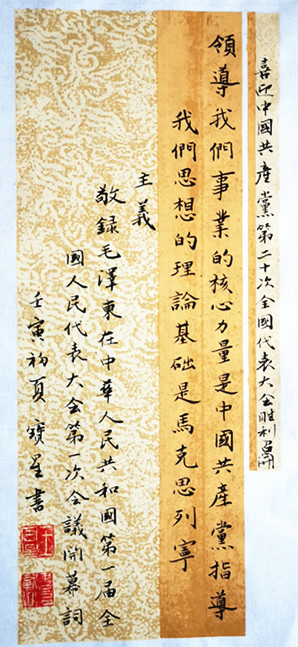 喜迎中國共產黨第二十次全國代表大会胜利召开
領導我們事業的核心力量是中國共產黨指導
我們思想的理論基础是馬克思列寧
主義
敬録毛澤東在中華人民共和國第一届全
國人民代表大会第一次会議開幕詞
壬寅初夏寶星書